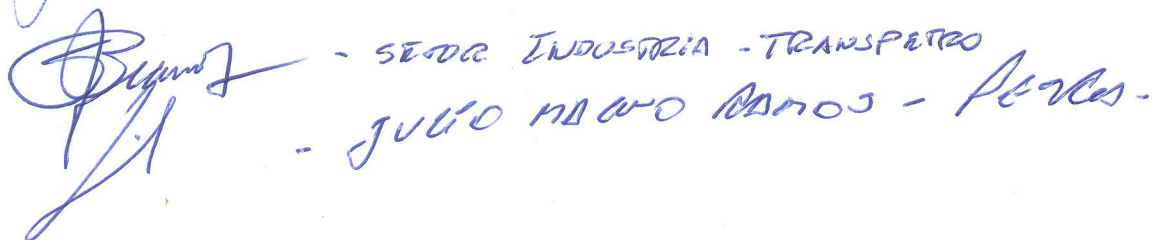 - SETOR INDUSTRIA - TRANSPETRO
- JULIO MAGNO RAMOS -